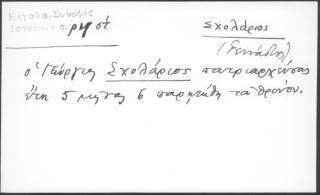 Κιγάλα, Σύνοψις
Ἱστοριῶν σ. ρμ σέ
Σχολάριος
(Γεννάδιος)
ὁ Γεώργιος Σχολάριος πατριαρχεύσας
ἔτη 5 μῆνας 6 παρῃτήθη τοῦ θρόνου.